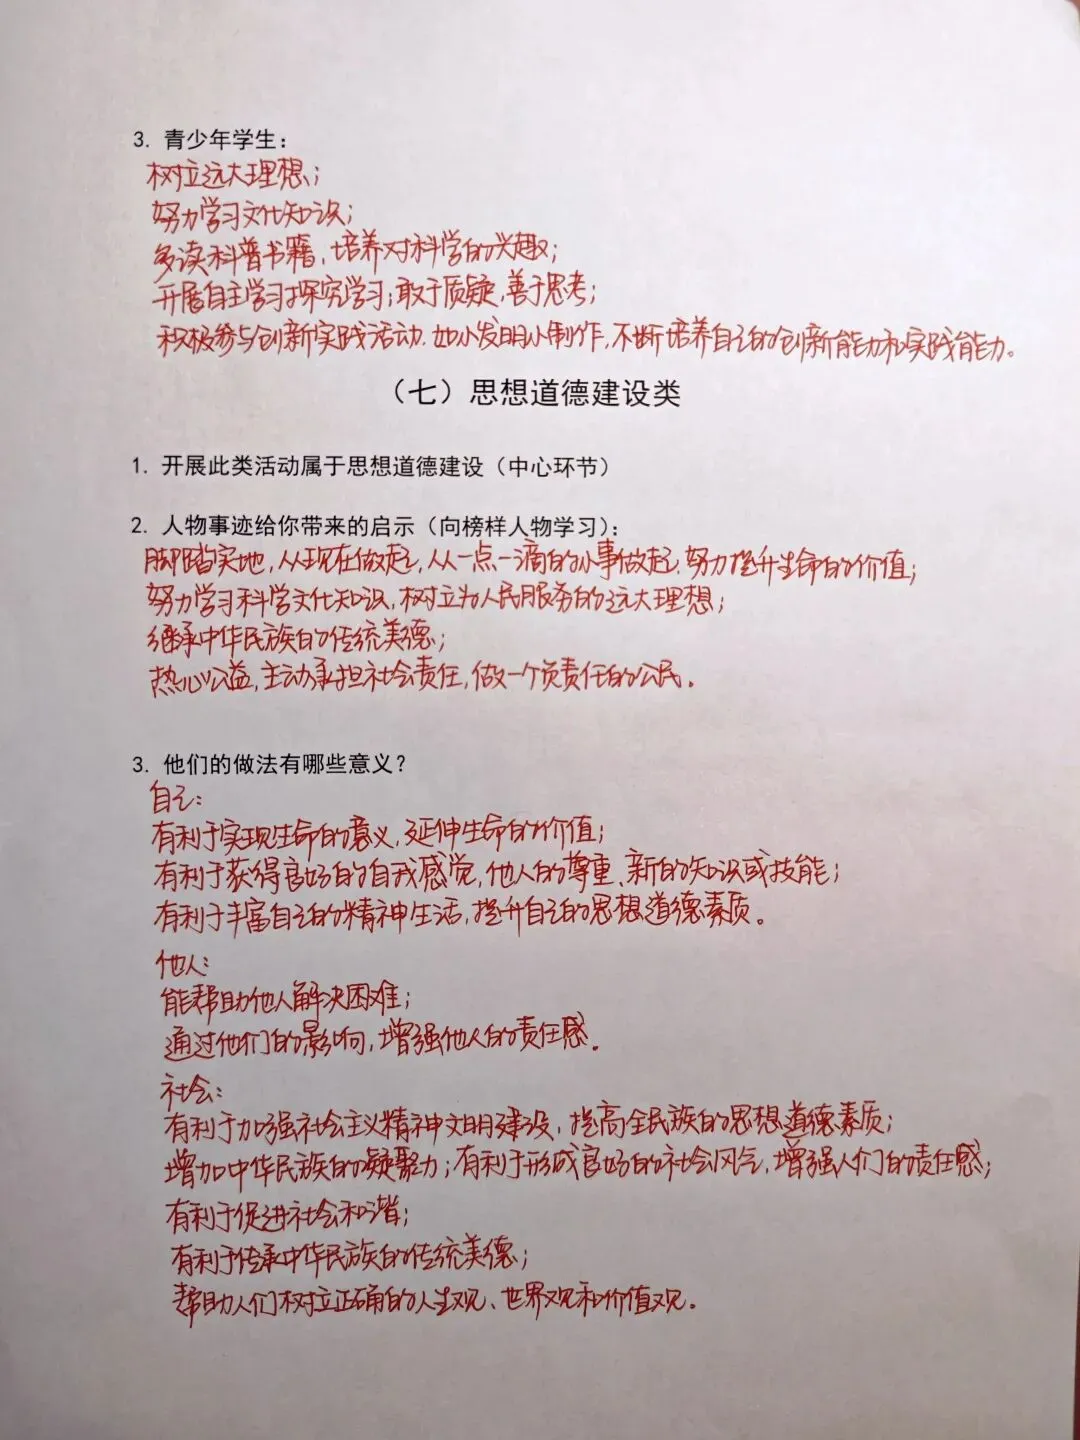 3. 青少年学生：
树立远大理想；
努力学习文化知识；
多读科普书籍，培养对科学的兴趣；
开展自主学习探究学习；敢于质疑，善于思考；
积极参与创新实践活动，如小发明小制作，不断培养自己的创新能力和实践能力。
（七）思想道德建设类
1. 开展此类活动属于思想道德建设（中心环节）
2. 人物事迹给你带来的启示（向榜样人物学习）：
脚踏实地，从现在做起，从一点一滴的小事做起，努力提升生命的价值；
努力学习科学文化知识，树立为人民服务的远大理想；
继承中华民族的传统美德；
热心公益，主动承担社会责任，做一个负责任的公民。
3. 他们的做法有哪些意义？
自己：
有利于实现生命的意义，延伸生命的价值；
有利于获得良好的自我感觉，他人的尊重、新的知识或技能；
有利于丰富自己的精神生活，提升自己的思想道德素质。
他人：
能帮助他人解决困难；
通过他们的影响，增强他人的责任感。
社会：
有利于加强社会主义精神文明建设，提高全民族的思想道德素质；
增加中华民族的凝聚力；有利于形成良好的社会风气，增强人们的责任感；
有利于促进社会和谐；
有利于传承中华民族的传统美德；
帮助人们树立正确的人生观、世界观和价值观。